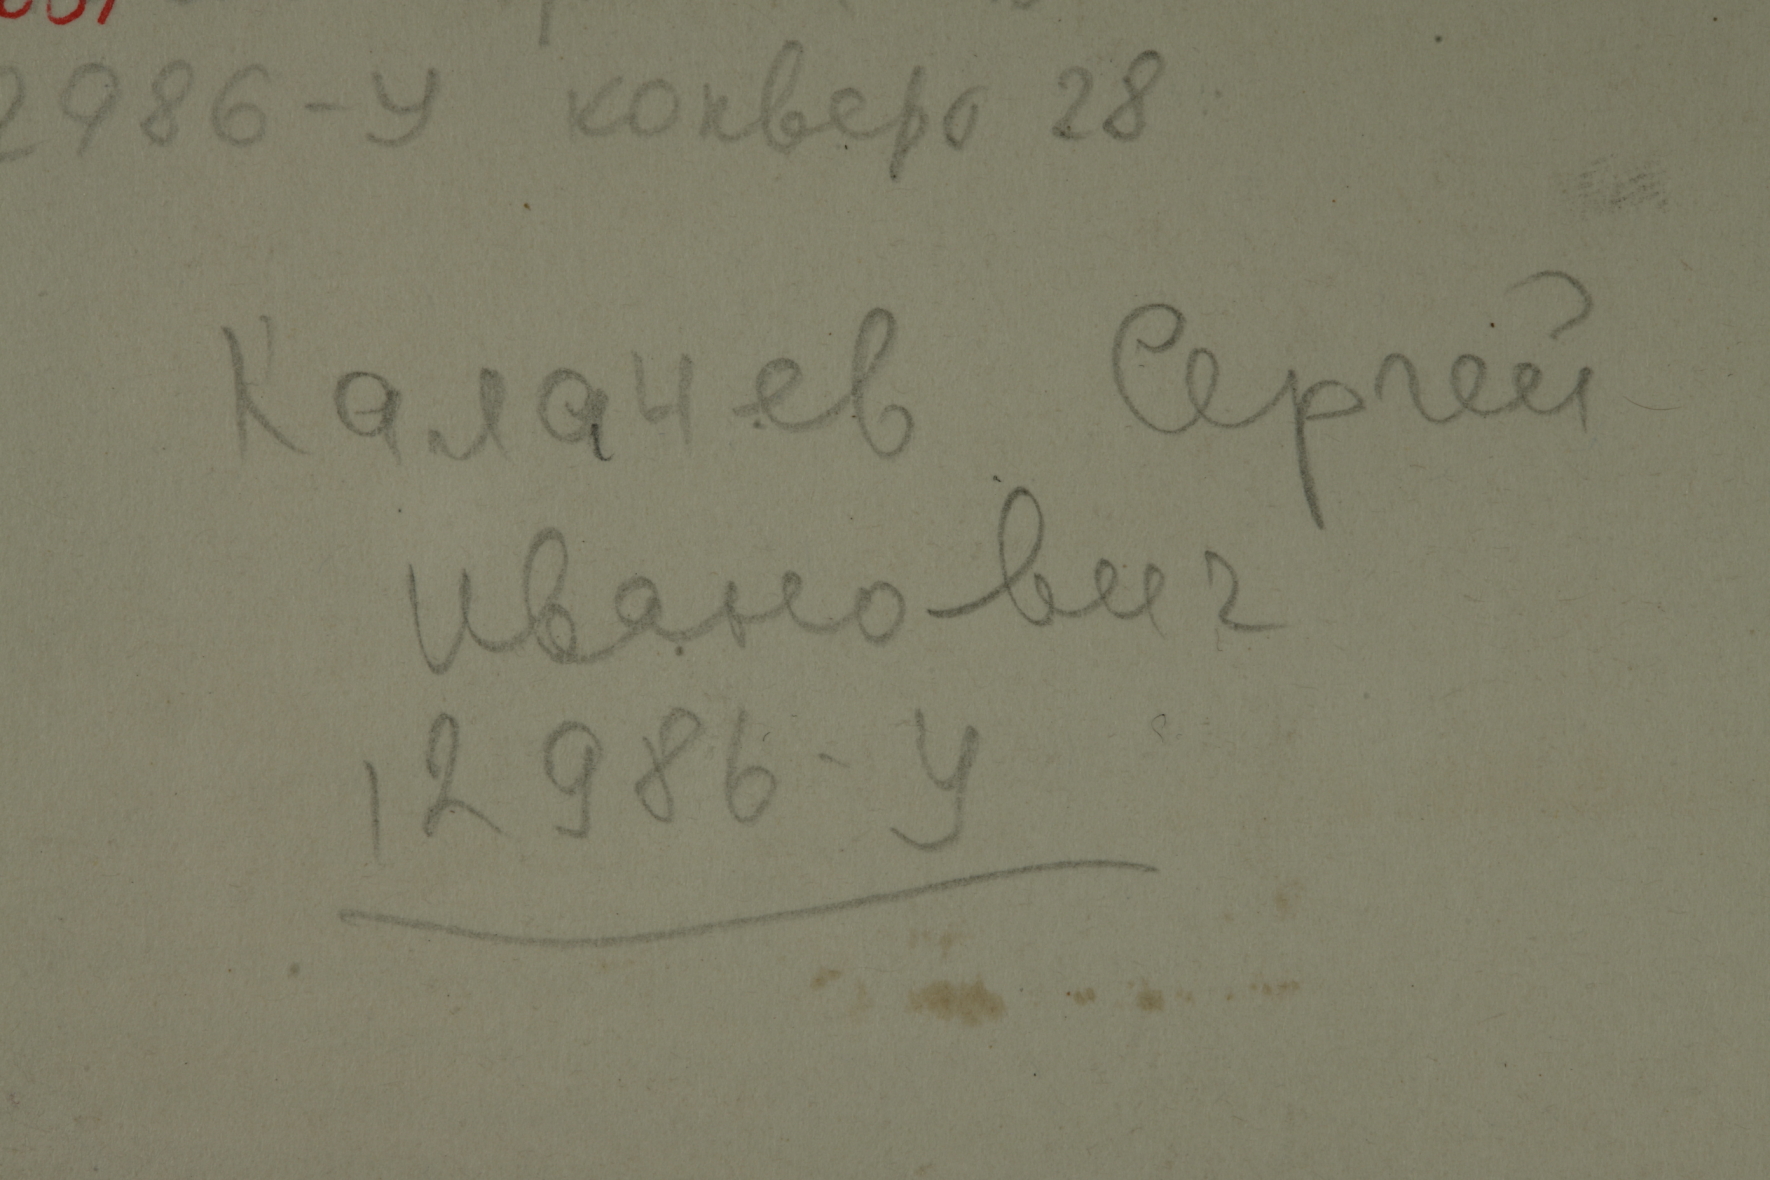 2986-У конверт 28
Калачев Сергей
Иванович
12986-У